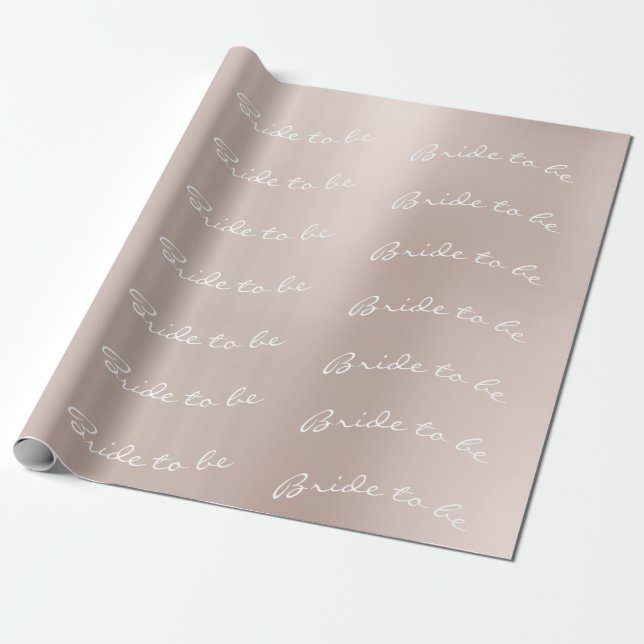 Bride to be Bride to be
Bride to be Bride to be
Bride to be Bride to be
Bride to be Bride to be
Bride to be Bride to be
Bride to be Bride to be
Bride to be Bride to be